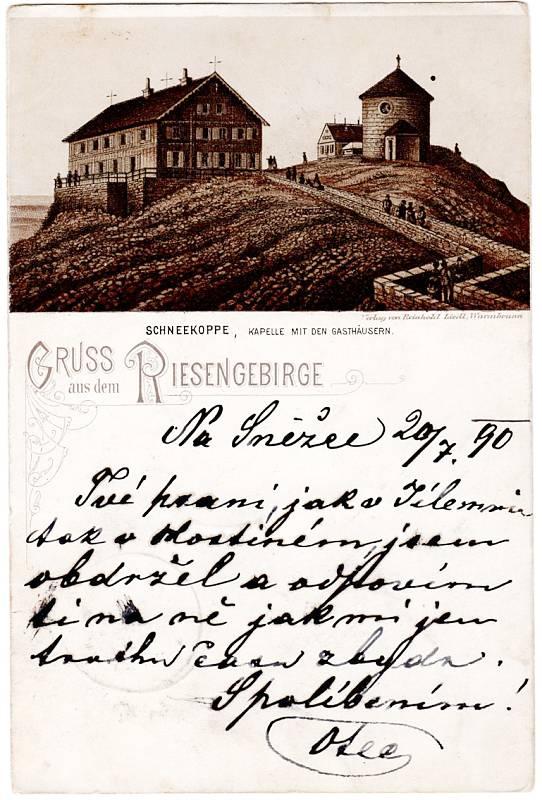 Verlag von Reinhold Liedl, Warmbrunn
SCHNEEKOPPE, KAPELLE MIT DEN GASTHÄUSERN.
GRUSS
aus dem RIESENGEBIRGE
Na Sněžce 20/7. 90
Tvé psaní, jak v Jilemnici
tak v Hostiném, jsem
obdržel a odpovím
ti na ně jak mi jen
trochu času zbyde.
S políbením!
Otec